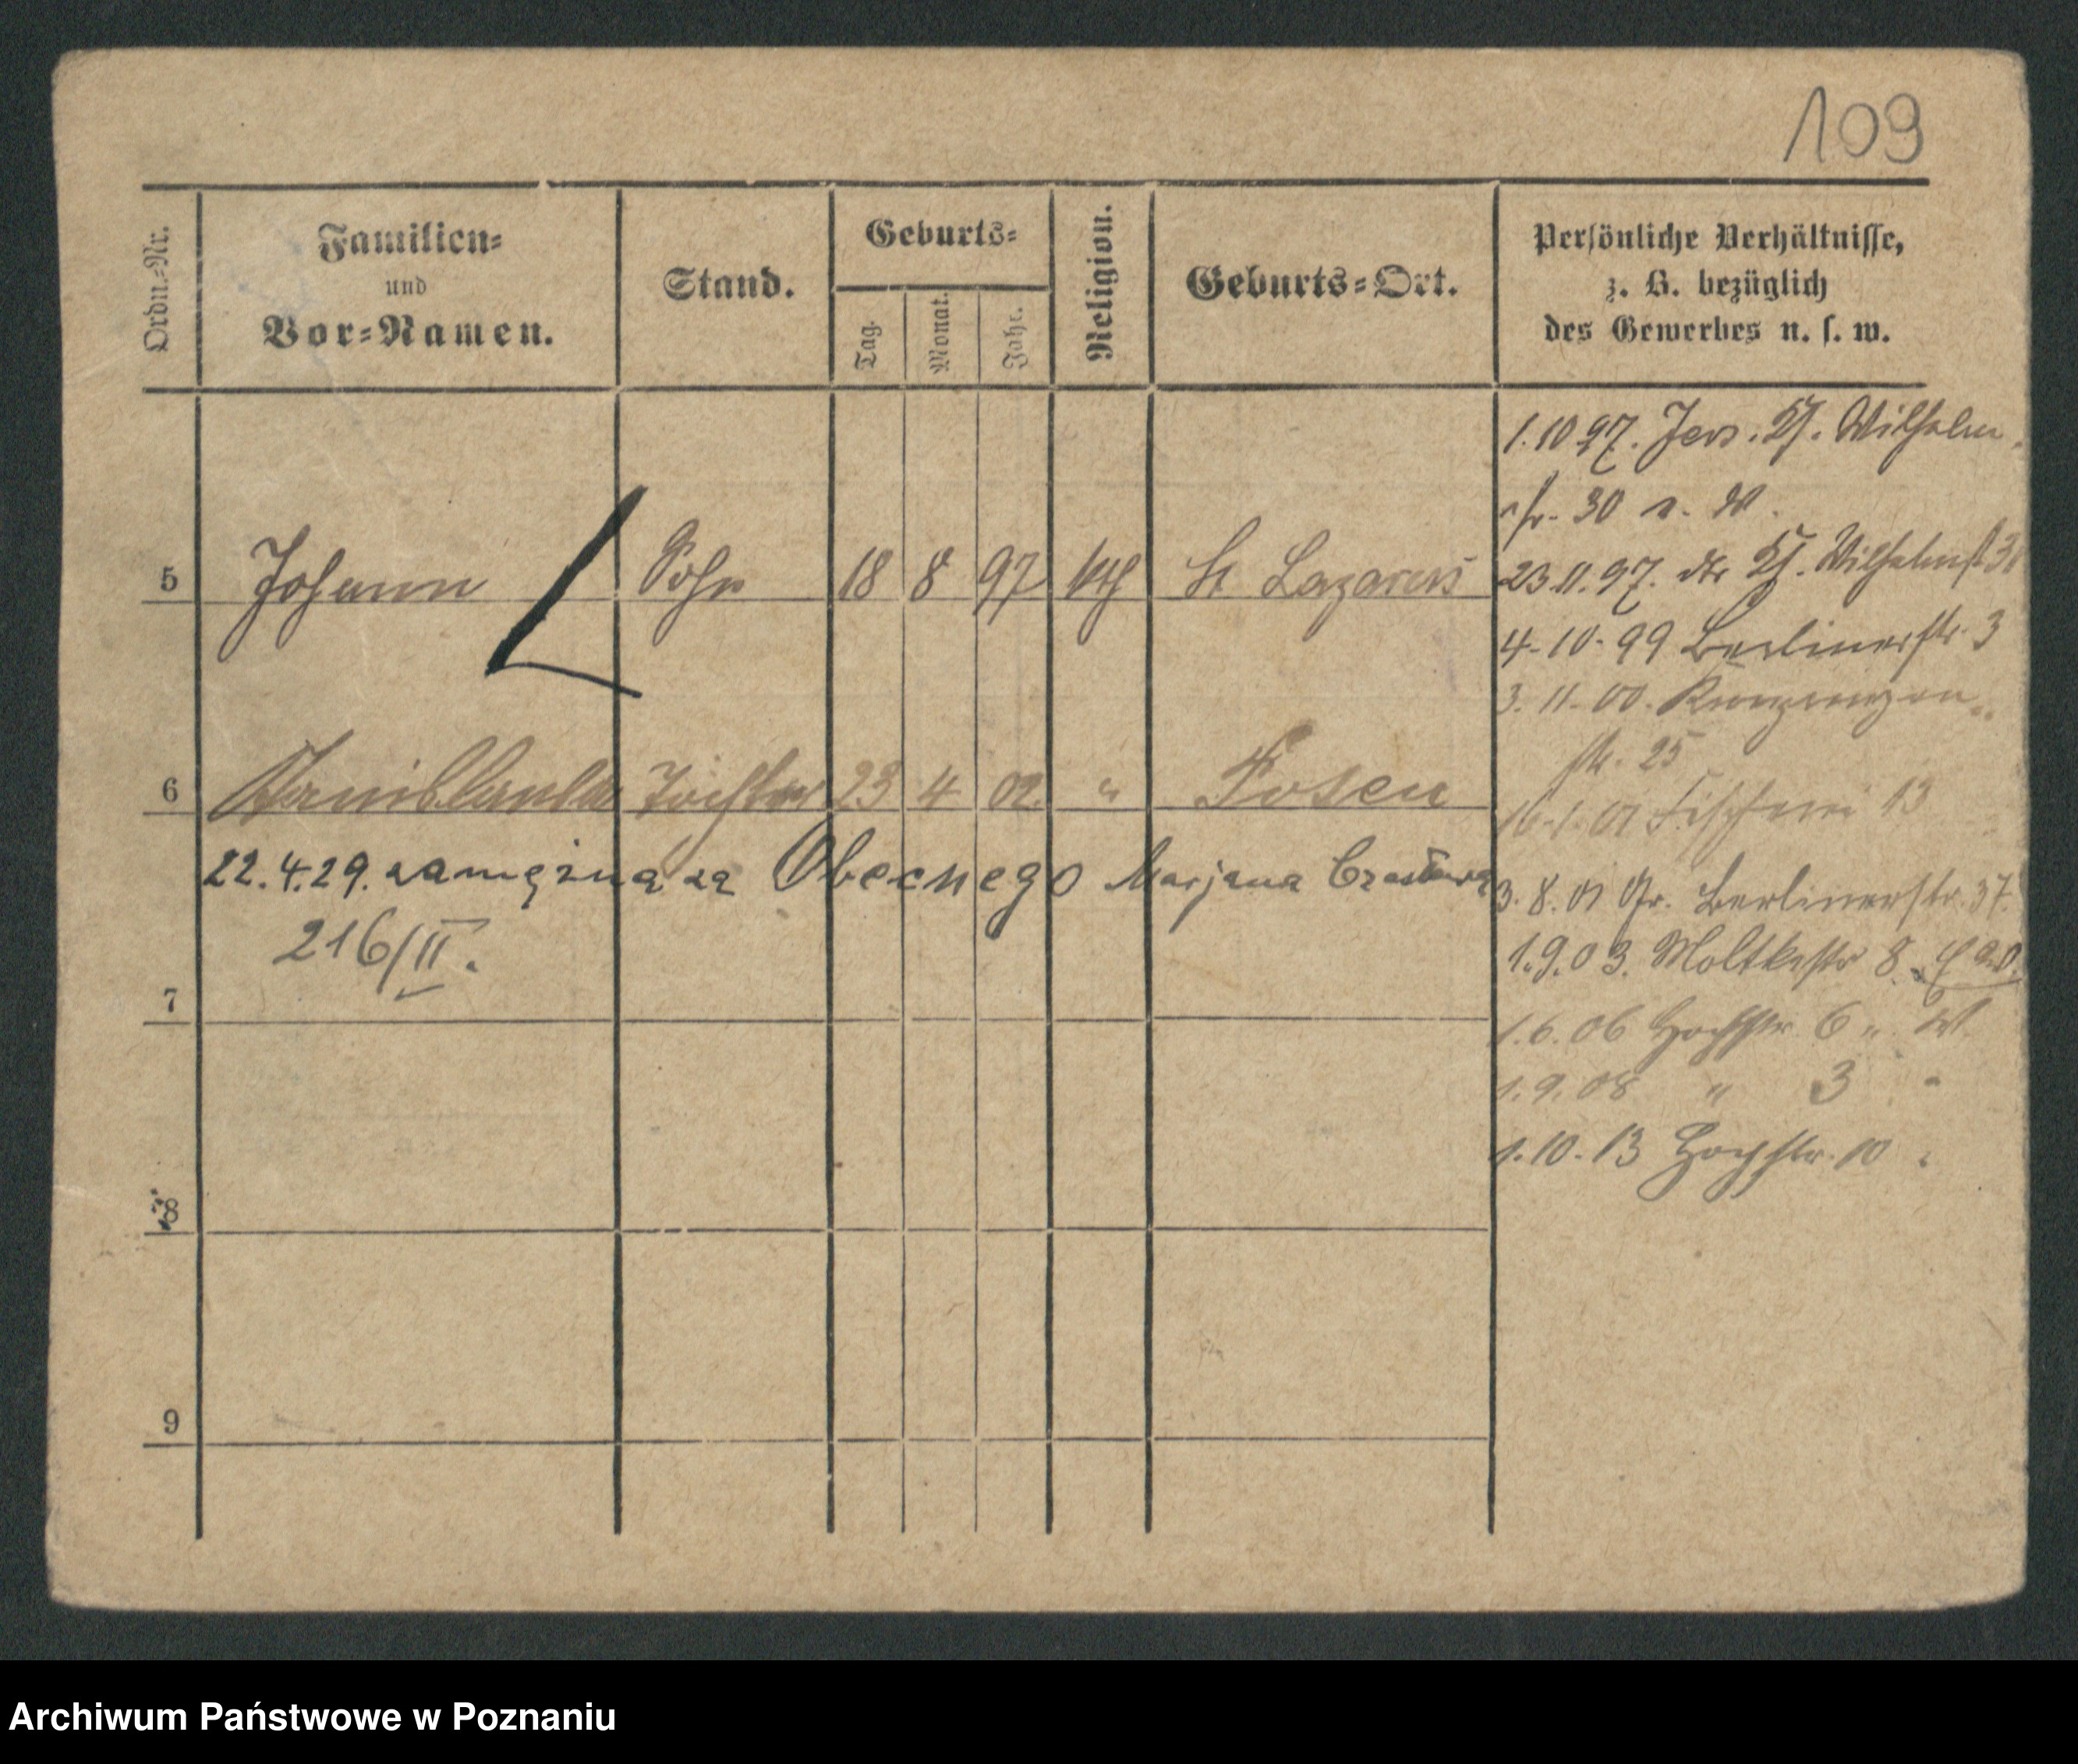 109
Ordn.-Nr.
Familien-
und
Vor-Namen.
Stand.
Geburts-
Tag.
Monat.
Jahr.
Religion.
Geburts-Ort.
Persönliche Verhältnisse,
z. B. bezüglich
des Gewerbes u. s. w.
5 Johann Sohn 18 8 97 kth St Lazarus
6 Stanislawa Tochter 23 4 02. " Posen
22.4.29. zamężna za Obecnego Marjana
216/II.
7
8
9
1.10 97. Jers. Wilhelm
str. 30
23.11.97. Wilhelmst
4-10-99 Berlinerstr. 3
3.11.00.
str. 25
16.1.01 Fischerei 13
3.8.01 Gr. Berlinerstr. 37.
1.9.03. Moltkestr 8
1.6.06 Hochstr. 6
1.9.08 " 3 "
1.10.13 Hochstr. 10
Archiwum Państwowe w Poznaniu